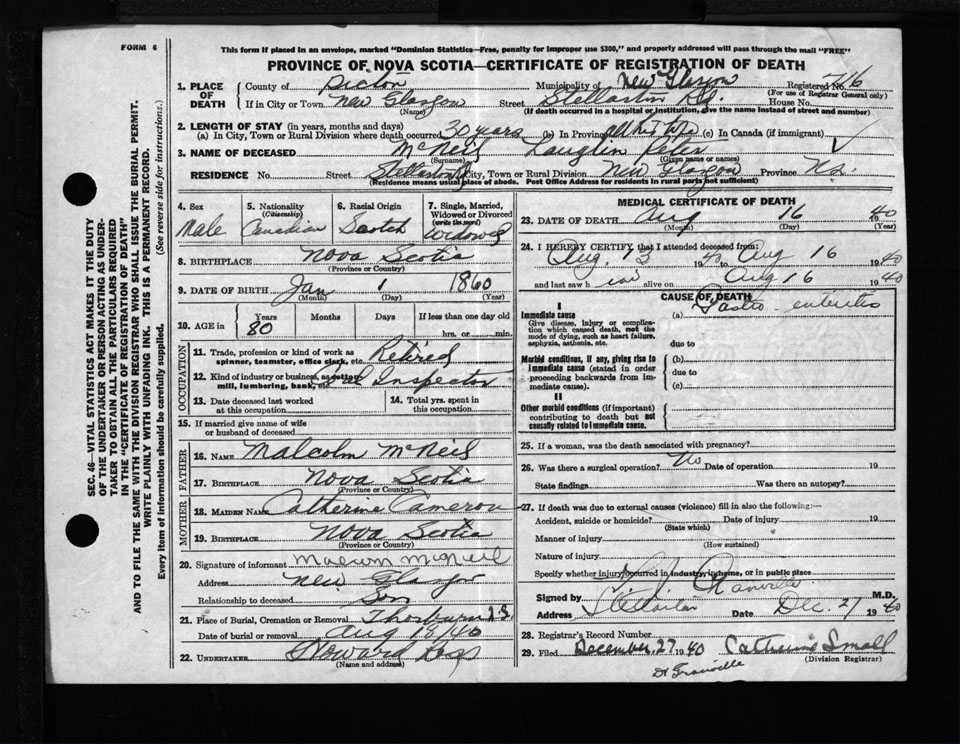 FORM 6
This form if placed in an envelope, marked "Dominion Statistics—Free, penalty for improper use $300," and properly addressed will pass through the mail "FREE"
PROVINCE OF NOVA SCOTIA—CERTIFICATE OF REGISTRATION OF DEATH
SEC. 46—VITAL STATISTICS ACT MAKES IT THE DUTY
OF THE UNDERTAKER OR PERSON ACTING AS UNDER-
TAKER TO OBTAIN ALL THE PARTICULARS REQUIRED
IN THE "CERTIFICATE OF REGISTRATION OF DEATH"
AND TO FILE THE SAME WITH THE DIVISION REGISTRAR WHO SHALL ISSUE THE BURIAL PERMIT.
WRITE PLAINLY WITH UNFADING INK. THIS IS A PERMANENT RECORD.
Every item of information should be carefully supplied. (See reverse side for instructions.)
1. PLACE OF DEATH
County of Pictou Municipality of New Glasgow Registered No. 716
(For use of Registrar General only)
If in City or Town New Glasgow Street Stellarton Rd. House No.
(Name) (If death occurred in a hospital or institution, give the name instead of street and number)
2. LENGTH OF STAY (in years, months and days)
(a) In City, Town or Rural Division where death occurred 30 years (b) In Province all his life (c) In Canada (if immigrant)
3. NAME OF DECEASED McNeil Lauglin Peter
(Surname) (Given name or names)
RESIDENCE No. Street Stellarton Rd City, Town or Rural Division New Glasgow Province N.S.
(Residence means usual place of abode. Post Office Address for residents in rural parts not sufficient)
4. Sex Male
5. Nationality (Citizenship) Canadian
6. Racial Origin Scotch
7. Single, Married, Widowed or Divorced (write the word) Widowed
8. BIRTHPLACE Nova Scotia
(Province or Country)
9. DATE OF BIRTH Jan 1 1860
(Month) (Day) (Year)
10. AGE in Years Months Days If less than one day old
80 hrs. or min.
OCCUPATION
11. Trade, profession or kind of work as spinner, teamster, office clerk, etc. Retired
12. Kind of industry or business, as cotton mill, lumbering, bank, etc. Coal Inspector
13. Date deceased last worked at this occupation
14. Total yrs. spent in this occupation
15. If married give name of wife or husband of deceased
FATHER
16. NAME Malcolm McNeil
17. BIRTHPLACE Nova Scotia
(Province or Country)
MOTHER
18. MAIDEN NAME Catherine Cameron
19. BIRTHPLACE Nova Scotia
(Province or Country)
20. Signature of informant Malcolm McNeil
Address New Glasgow
Relationship to deceased Son
21. Place of Burial, Cremation or Removal Thorburn N.S.
Date of burial or removal Aug 18/40
22. UNDERTAKER Howard Ross
(Name and address)
MEDICAL CERTIFICATE OF DEATH
23. DATE OF DEATH Aug 16 1940
(Month) (Day) (Year)
24. I HEREBY CERTIFY that I attended deceased from:
Aug. 13 1940 Aug 16 1940
and last saw h im alive on Aug 16 1940
CAUSE OF DEATH
I
Immediate cause (a) Gastro-enteritis
Give disease, injury or complication which caused death, not the mode of dying, such as heart failure, asphyxia, asthenia, etc.
due to
Morbid conditions, if any, giving rise to immediate cause (stated in order proceeding backwards from immediate cause).
(b)
due to
(c)
II
Other morbid conditions (if important) contributing to death but not causally related to immediate cause.
25. If a woman, was the death associated with pregnancy?
26. Was there a surgical operation? No Date of operation 19
State findings Was there an autopsy?
27. If death was due to external causes (violence) fill in also the following:—
Accident, suicide or homicide? Date of injury 19
(State which)
Manner of injury
(How sustained)
Nature of injury
Specify whether injury occurred in industry, in home, or in public place
Signed by M.D.
Address Stellarton Date Dec. 27 1940
28. Registrar's Record Number
29. Filed December 27 1940 Catherine Small
(Division Registrar)
Dr Granville